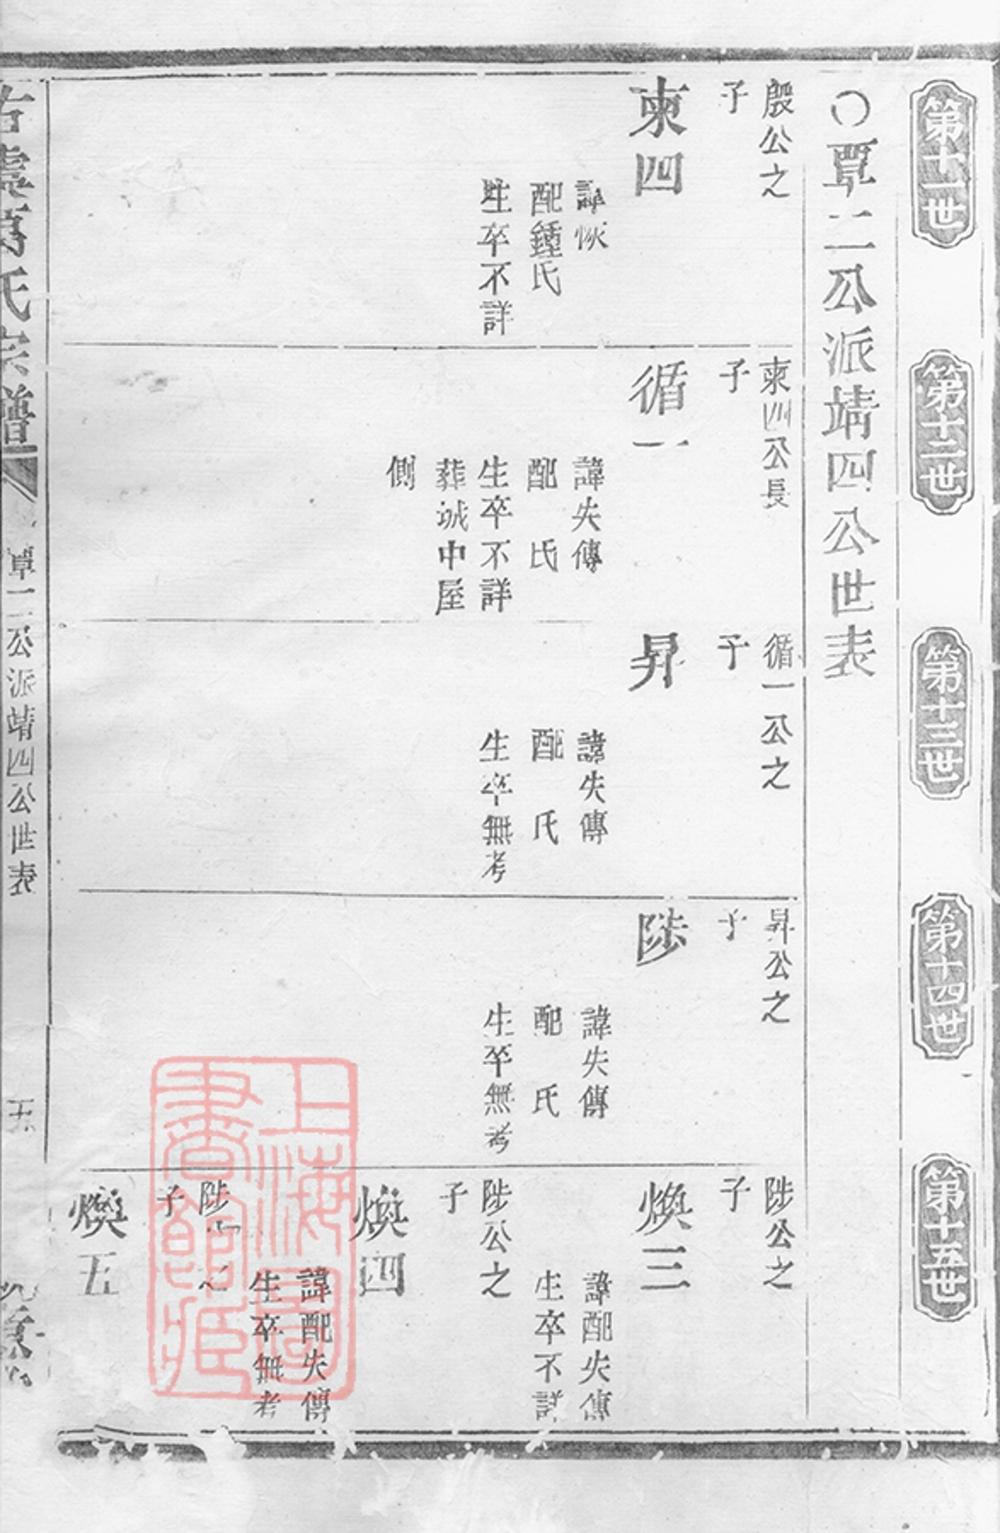 第十一世
第十二世
第十三世
第十四世
第十五世
○覃二公派靖四公世表
殷公之
子
柬四
諱恢
配鍾氏
生卒不詳
柬四公長
子
循一
諱失傳
配 氏
生卒不詳
葬城中屋
側
循一公之
子
昇
諱失傳
配 氏
生卒無考
昇公之
子
陟
諱失傳
配 氏
生卒無考
陟公之
子
煥三
諱配失傳
生卒不詳
陟公之
子
煥四
諱配失傳
生卒無考
陟公之
子
煥五
古虞 氏宗譜
覃二公派靖四公世表
五
上海圖
書館藏